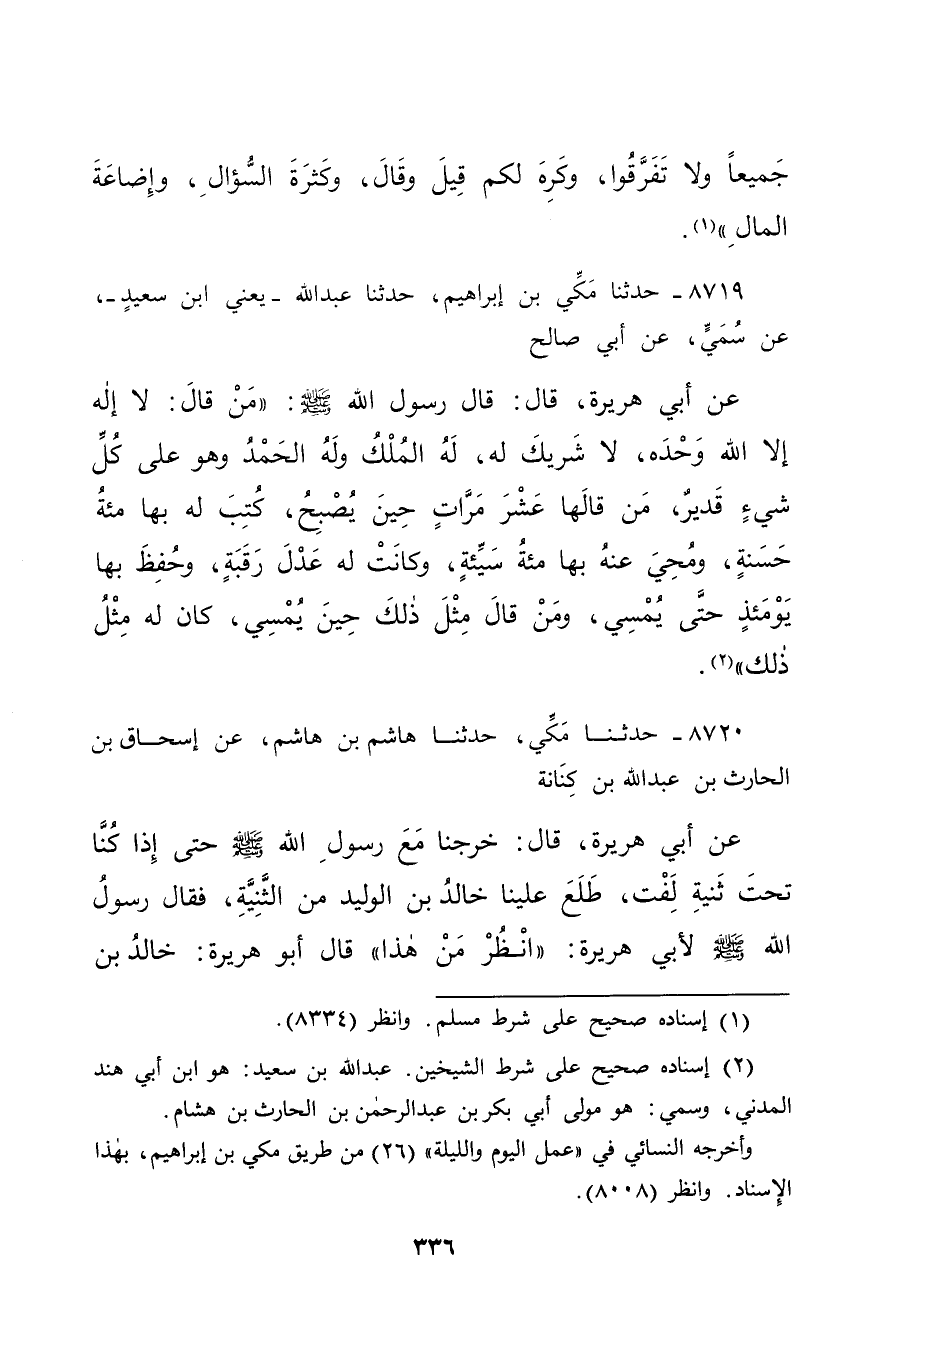 جَميعاً ولا تَفَرَّقُوا، وكَرِهَ لكم قِيلَ وقَالَ، وكَثرَةَ السُّؤالِ، وإِضاعَةَ
المالِ»(١).
٨٧١٩ ـ حدثنا مَكِّي بن إبراهيم، حدثنا عبدالله ـ يعني ابن سعيدٍ ـ،
عن سُمَيٍّ، عن أبي صالح
عن أبي هريرة، قال: قال رسول الله ﷺ: «مَنْ قالَ: لا إلٰه
إلا الله وَحْدَه، لا شَريكَ له، لَهُ المُلْكُ ولَهُ الحَمْدُ وهو على كُلِّ
شيءٍ قَديرٌ، مَن قالَها عَشْرَ مَرَّاتٍ حِينَ يُصْبِحُ، كُتِبَ له بها مئةُ
حَسَنةٍ، ومُحِيَ عنهُ بها مئةُ سَيِّئةٍ، وكانَتْ له عَدْلَ رَقَبَةٍ، وحُفِظَ بها
يَوْمَئذٍ حتَّى يُمْسِي، ومَنْ قالَ مِثْلَ ذٰلكَ حِينَ يُمْسِي، كان له مِثْلُ
ذٰلك»(٢).
٨٧٢٠ ـ حدثنا مَكِّي، حدثنا هاشم بن هاشم، عن إسحاق بن
الحارث بن عبدالله بن كِنَانة
عن أبي هريرة، قال: خرجنا مَعَ رسولِ الله ﷺ حتى إِذا كُنَّا
تحتَ ثَنيةِ لَفْت، طَلَعَ علينا خالدُ بن الوليد من الثَّنِيَّةِ، فقال رسولُ
الله ﷺ لأبي هريرة: «انْظُرْ مَنْ هٰذا» قال أبو هريرة: خالدُ بن
(١) إسناده صحيح على شرط مسلم. وانظر (٨٣٣٤).
(٢) إسناده صحيح على شرط الشيخين. عبدالله بن سعيد: هو ابن أبي هند
المدني، وسمي: هو مولى أبي بكر بن عبدالرحمٰن بن الحارث بن هشام.
وأخرجه النسائي في «عمل اليوم والليلة» (٢٦) من طريق مكي بن إبراهيم، بهٰذا
الإسناد. وانظر (٨٠٠٨).
٣٣٦